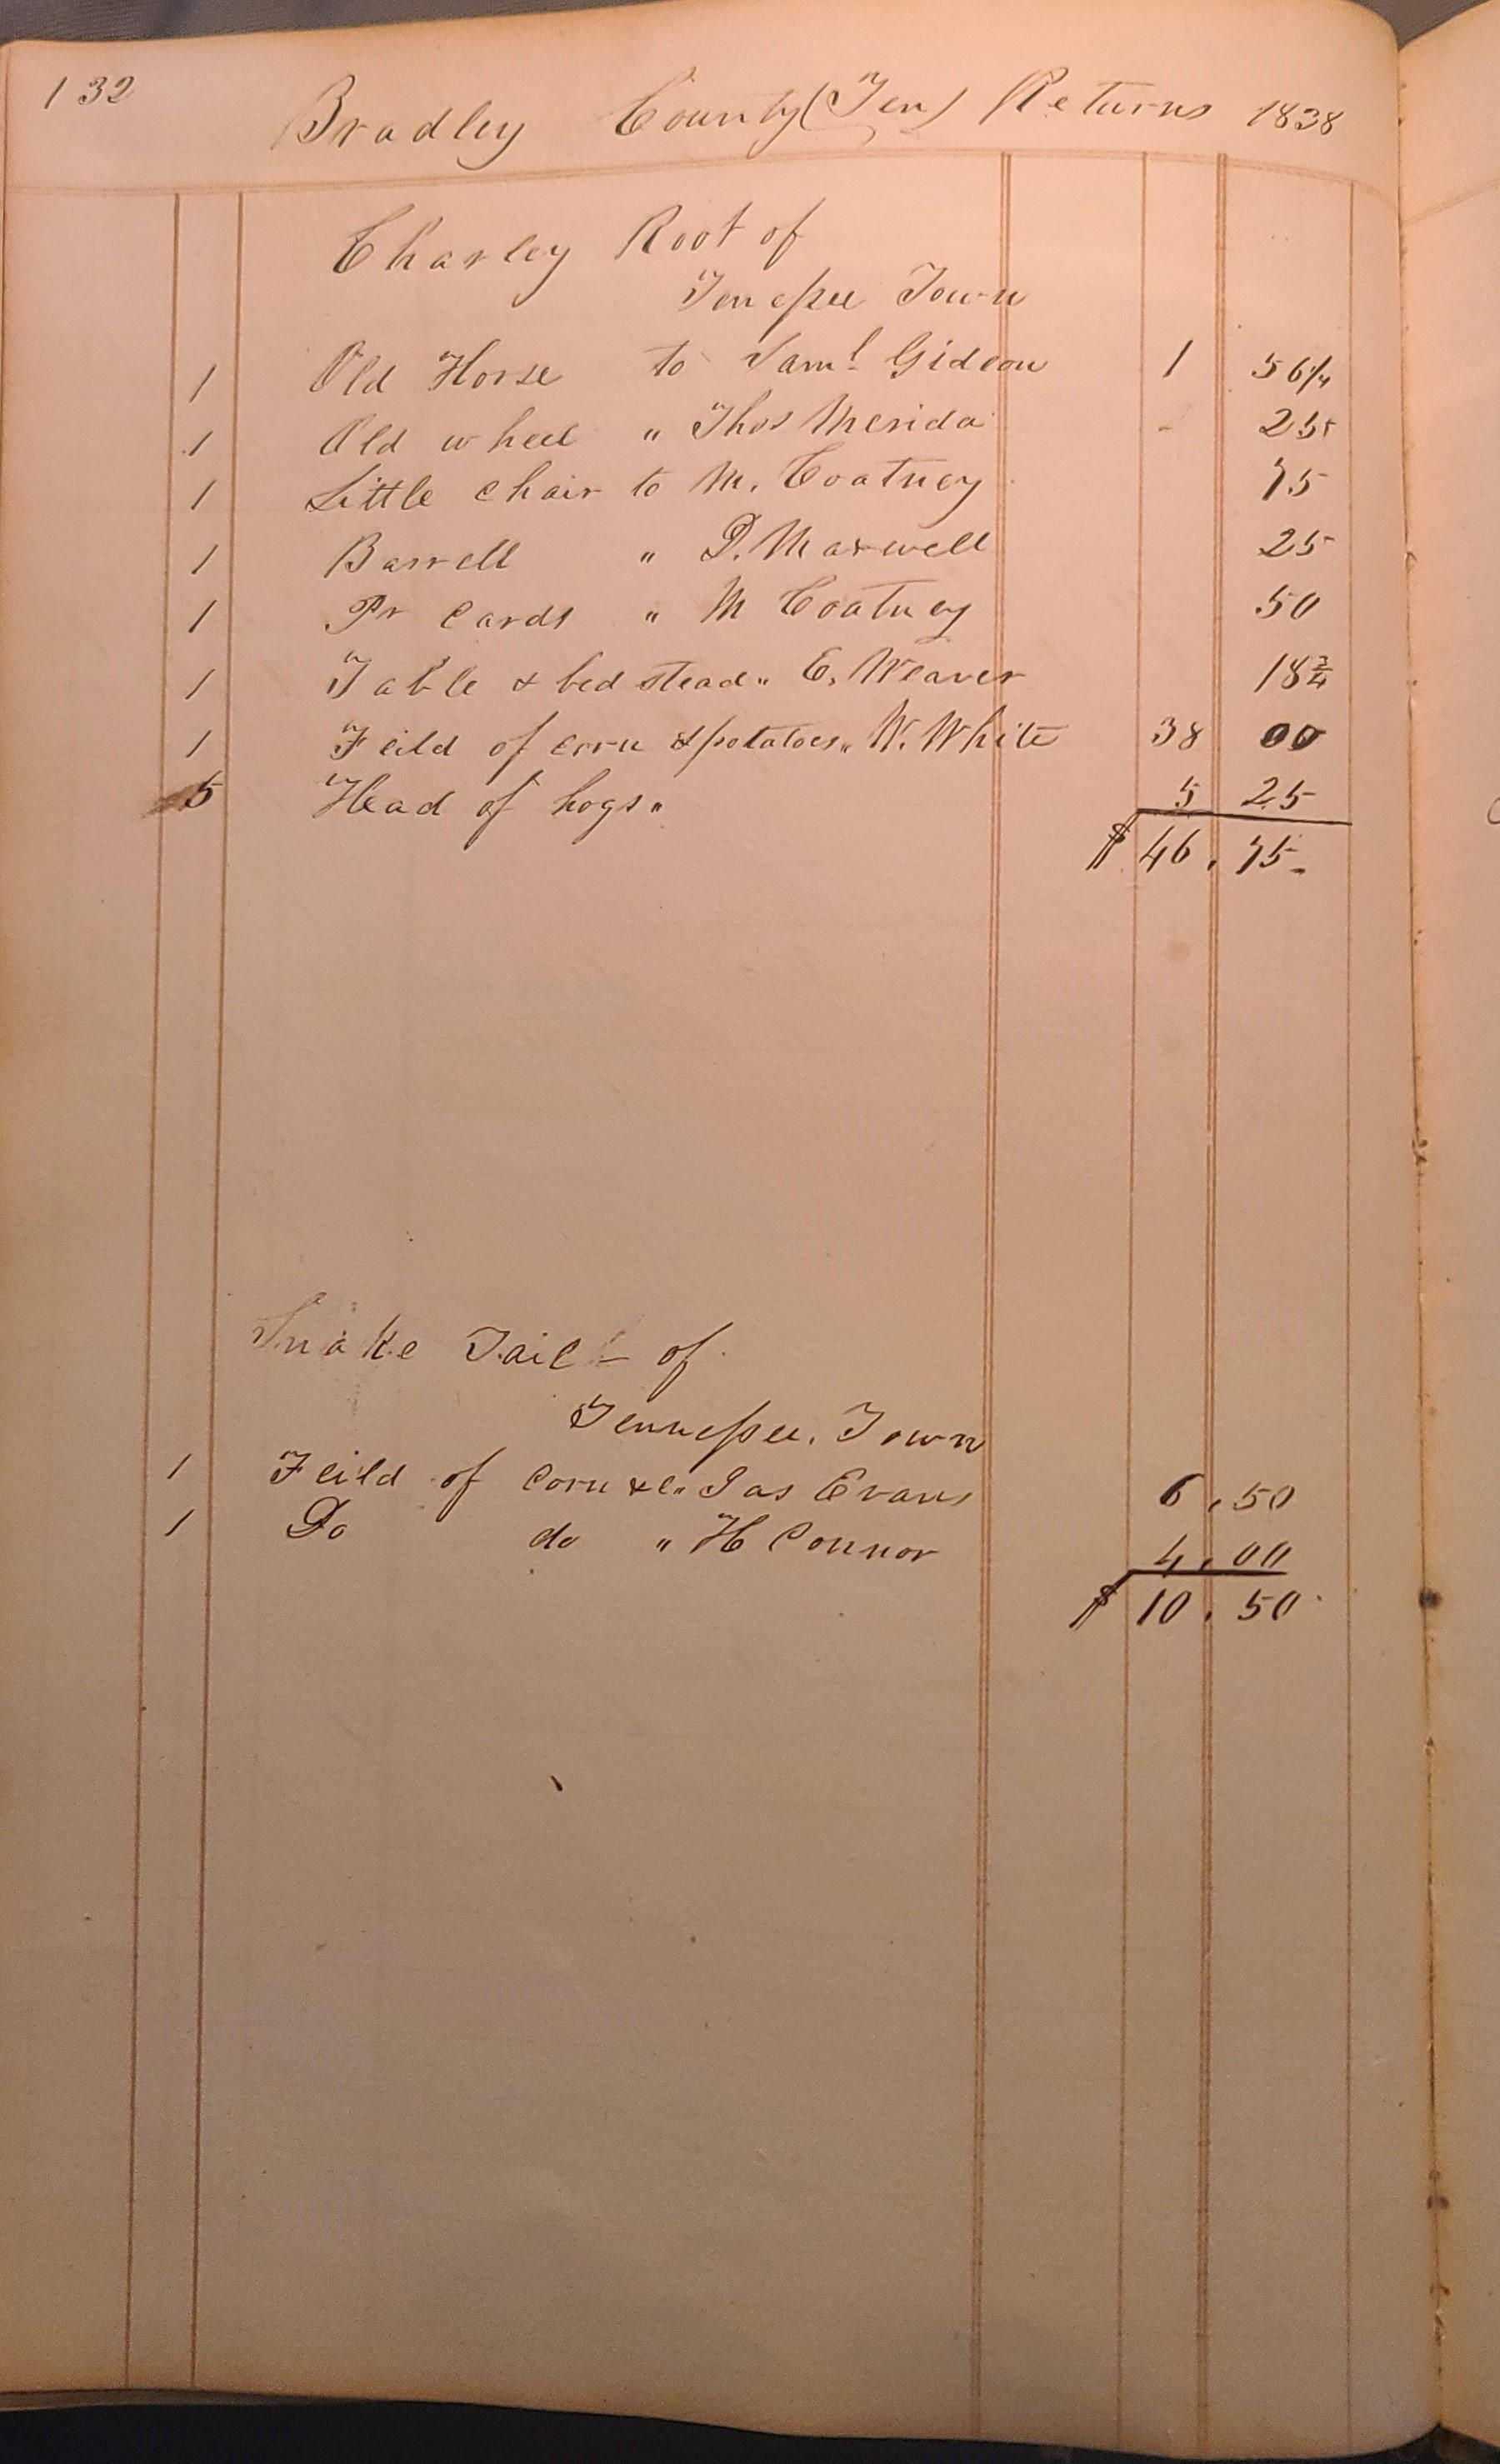 132
Bradley County (Ten) Returns 1838
Charley Root of
Tenessee Town
1 Old Horse to Saml Gideon 1 56 1/4
1 Old wheel " Thos Merida - 25
1 Little chair to M. Coatney 75
1 Barrell " D. Maxwell 25
1 Pr Cards " M Coatney 50
1 Table & bed stead " E. Weaver 18 3/4
1 Feild of corn & potatoes " W. White 38 00
5 Head of hogs " 5 25
$ 46.75
Snake Tail - of
Tennessee. Town
1 Feild of Corn &c " Jas Evans 6.50
1 Do do " H Connor 4.00
$ 10.50